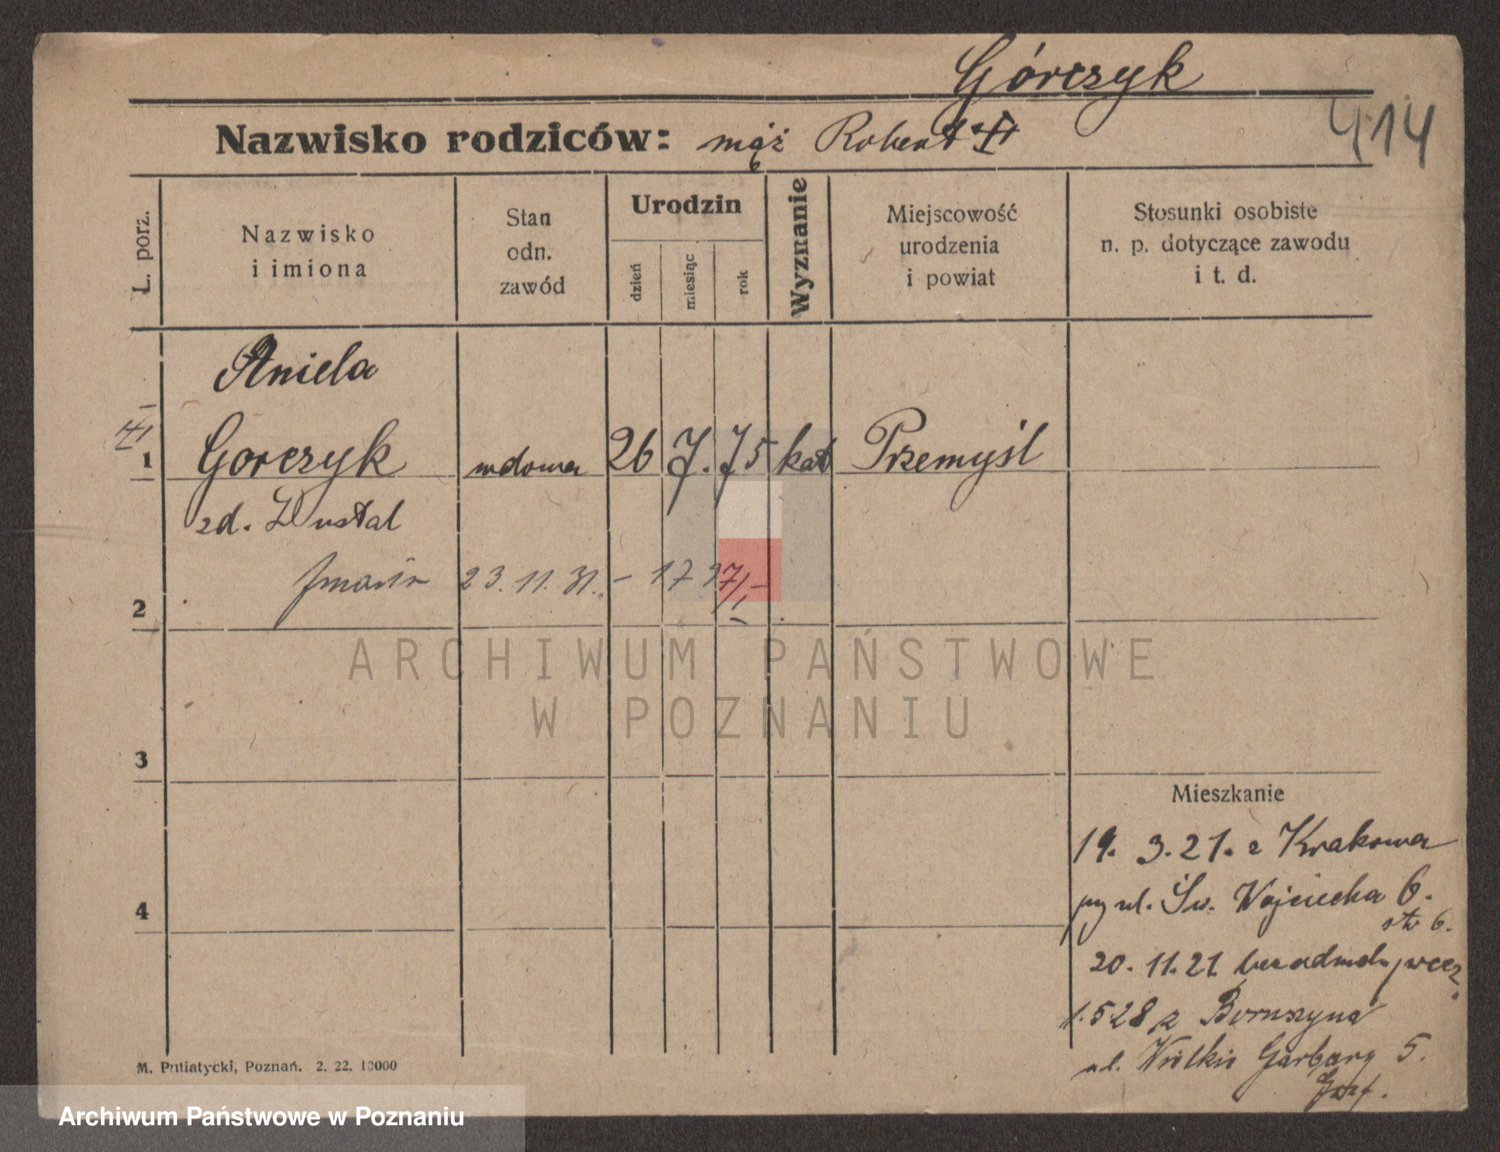 Górczyk
Nazwisko rodziców: mąż Robert
414
L. porz.
Nazwisko
i imiona
Stan
odn.
zawód
Urodzin
dzień
miesiąc
rok
Wyznanie
Miejscowość
urodzenia
i powiat
Stosunki osobiste
n. p. dotyczące zawodu
i t. d.
Aniela
1 Gorczyk wdowa 26 7. 75 kat Przemyśl
zd. Dustal
2 23. 11. 31. –
3
Mieszkanie
19. 3. 21. z Krakowa
ul. Św. Wojciecha 6.
4
20. 11. 21
1.5 28 z Boruszyna
ul. Wielkie Garbary 5.
M. Putiatycki, Poznań. 2. 22. 10000
ARCHIWUM PAŃSTWOWE
W POZNANIU
Archiwum Państwowe w Poznaniu